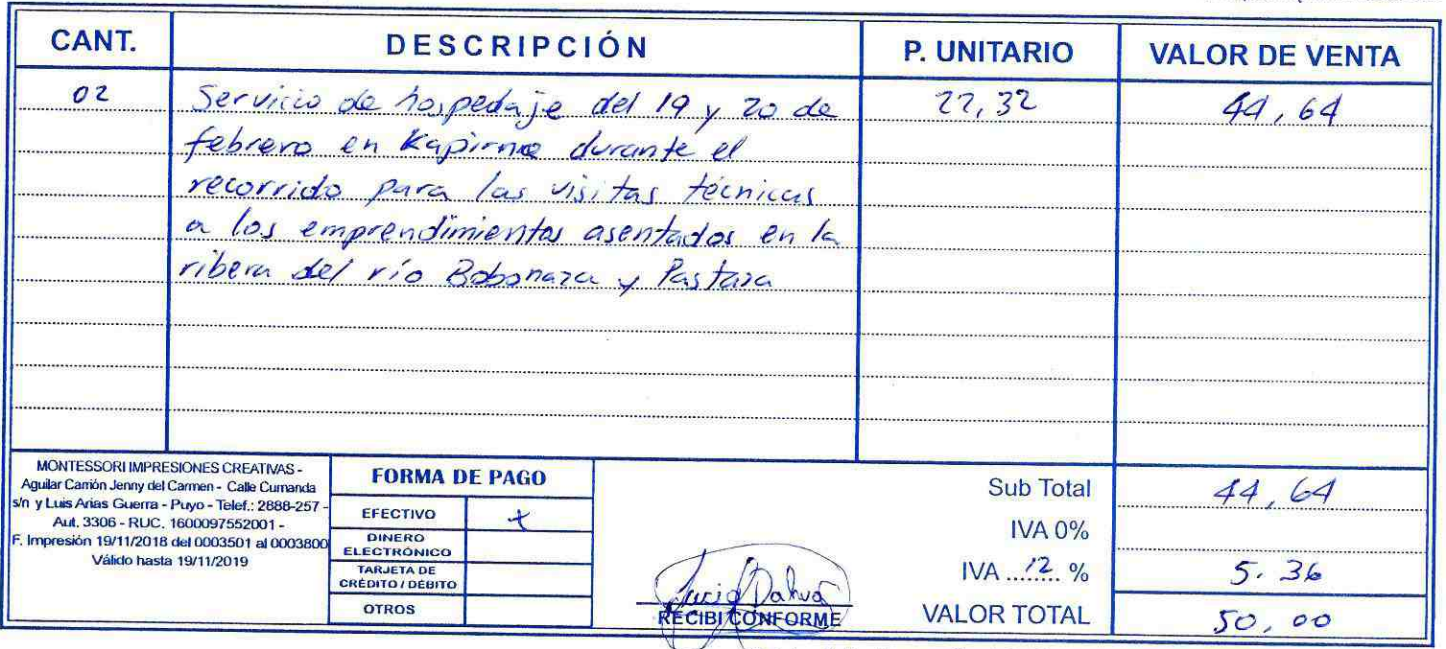 CANT. DESCRIPCIÓN P. UNITARIO VALOR DE VENTA
02 Servicio de hospedaje del 19 y 20 de 22,32 44,64
febrero en Kapirna durante el
recorrido para las visitas técnicas
a los emprendimientos asentados en la
ribera del río Bobonaza y Pastaza
MONTESSORI IMPRESIONES CREATIVAS -
Aguilar Carrión Jenny del Carmen - Calle Cumanda
s/n y Luis Arias Guerra - Puyo - Telef.: 2888-257 -
Aut. 3306 - RUC. 1600097552001 -
F. Impresión 19/11/2018 del 0003501 al 0003800
Válido hasta 19/11/2019
FORMA DE PAGO
EFECTIVO x
DINERO
ELECTRÓNICO
TARJETA DE
CRÉDITO / DÉBITO
OTROS
RECIBI CONFORME
Sub Total 44,64
IVA 0%
IVA 12 % 5.36
VALOR TOTAL 50,00